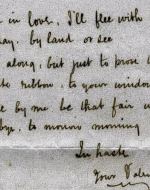 in love. I'll flee with
ay, by land or see
along, but just to prove
te ribbon, to your window
e by me, be that fair
bye, to morrow morning
In haste
Your Vale